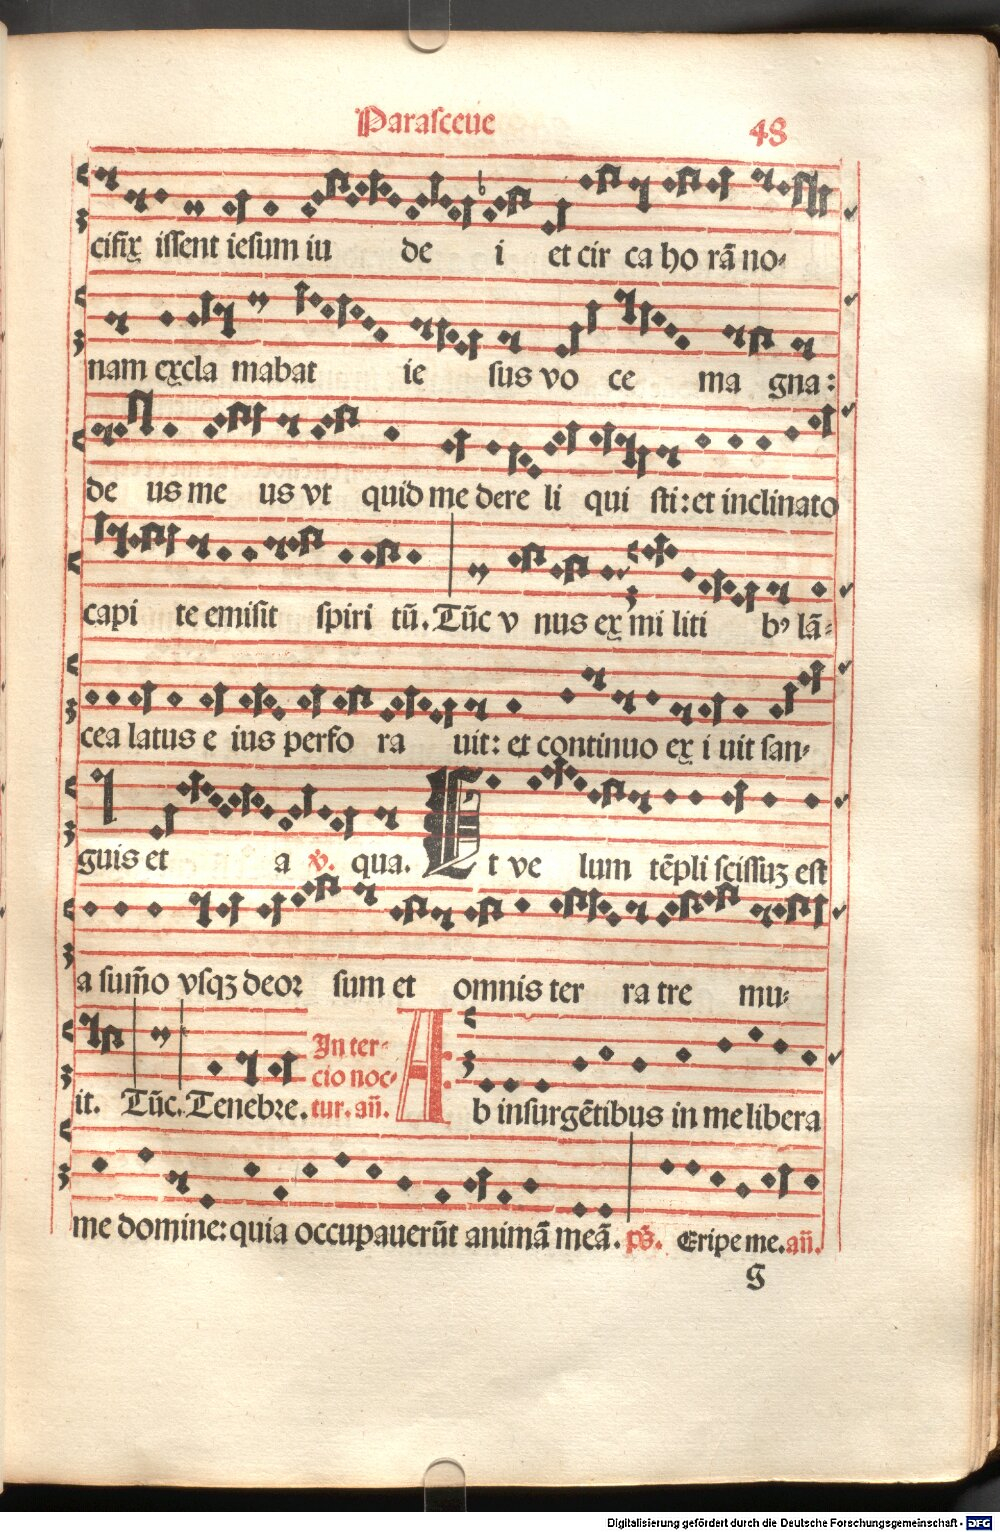 Parasceue
48
cifix issent iesum iu de i et cir ca ho rā no-
nam excla mabat ie sus vo ce ma gna:
de us me us vt quid me dere li qui sti: et inclinato
capi te emisit spiri tū. Tūc v nus ex mi liti bꝰ lā-
cea latus e ius perfo ra uit: et continuo ex i uit san-
guis et a ℣. qua. Et ve lum tēpli scissuꝫ est
a sum̄o vsqꝫ deoꝛ sum et omnis ter ra tre mu-
it. Tūc. Tenebꝛe. In ter-
cio noc-
tur. an̄. Ab insurgētibus in me libera
me domine: quia occupauerūt animā meā. ps̄. Eripe me. an̄.
g
Digitalisierung gefördert durch die Deutsche Forschungsgemeinschaft - DFG